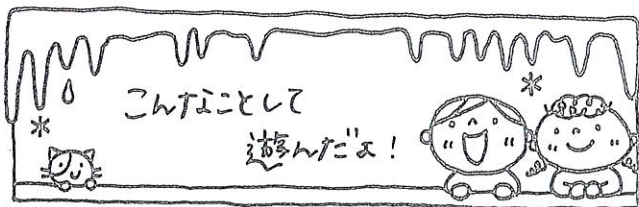 こんなことして
遊んだよ!